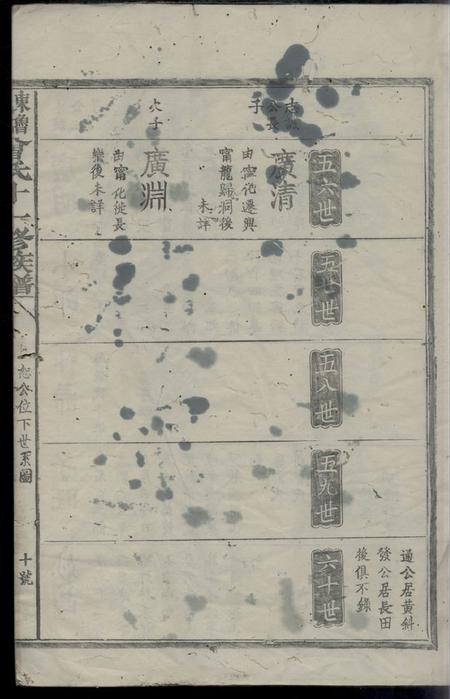 通公居黄斜
發公居長田
後俱不錄
五六世
五七世
五八世
五九世
六十世
公長
子
廣清
由寧化遷興
甯龍歸洞後
未詳
次子
廣淵
由甯化徙長
樂後未詳
東魯曾氏十一修族譜
恕公位下世系圖
十號